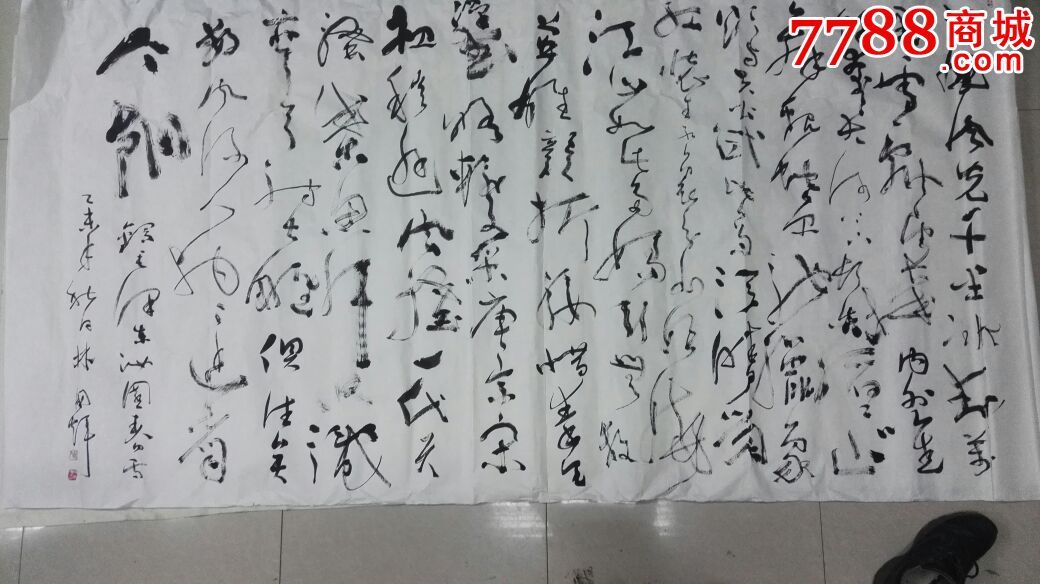 国风光千里冰封万
里雪飘望长城内外惟
大河上下顿失滔滔山
舞银蛇原驰蜡象
欲与天公试比高须晴
红装素裹
江山如此多娇引无数
英雄竞折腰惜秦皇
汉武略输文采唐宗宋
祖稍逊风骚一代天
骄成吉思汗只识
弯弓射大雕俱往矣
数风流人物还看
今朝
录毛泽东沁园春雪
乙未年秋日林
7788商城
.com